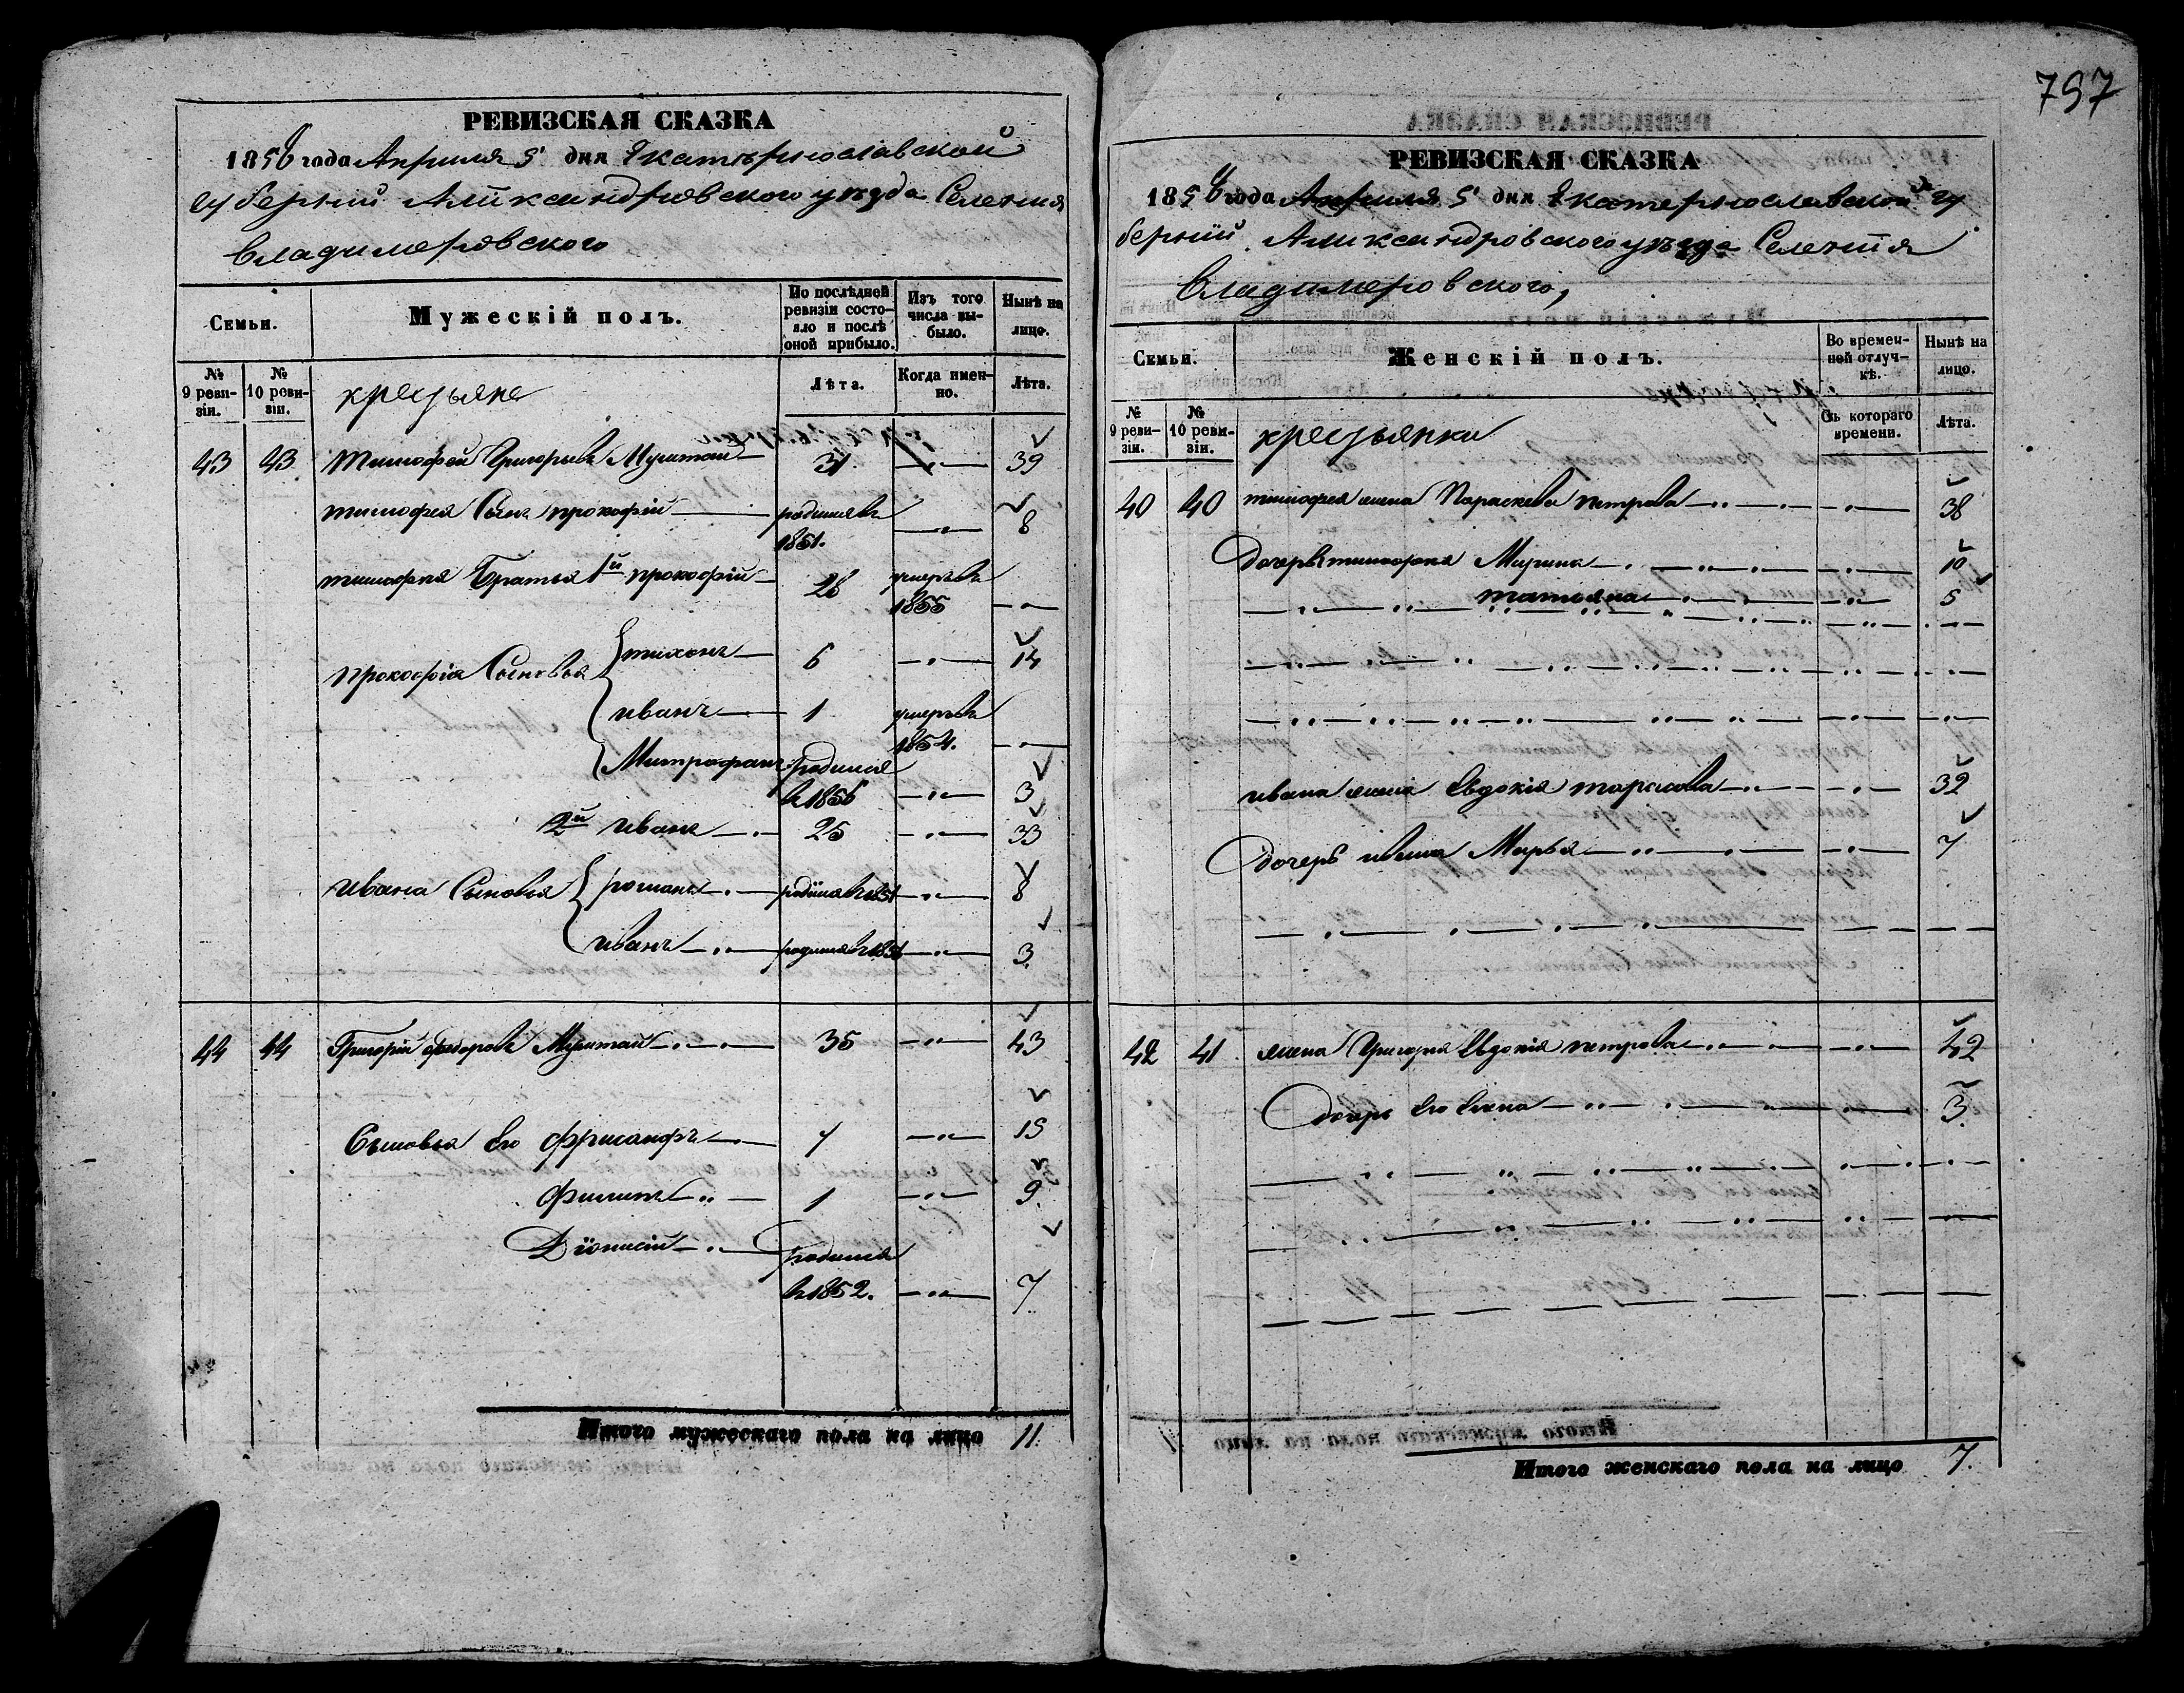 797
РЕВИЗСКАЯ СКАЗКА
1858 года Апреля 5 дня Екатеринославской
губернии Александровского уезда Селения
Владимеровского
Семьи.
Мужескій полъ.
По послѣдней ревизіи состояло и послѣ оной прибыло.
Изъ того числа выбыло.
Нынѣ на лицо.
№ 9 ревизіи.
№ 10 ревизіи.
крестьяне
Лѣта.
Когда именно.
Лѣта.
43 43 тимофей Григорьевъ 31 — 39
тимофея Сынъ прокофій — родился въ 1851. — 8
тимофея Братья 1й прокофій — 28 умеръ въ 1855 —
прокофія Сыновья тихонъ — 6 — 14
иванъ — 1 умеръ въ 1854. —
Митрофанъ родился в 1856 — 3
2й иванъ — 25 — 33
ивана Сыновья романъ — родился в 1851 — 8
иванъ — родился в 1856 — 3.
44 44 Григорій федоровъ 35 — 43
Сыновья Его 7 — 15
филипъ — 1 — 9.
Діонисій — родился в 1852. — 7
Итого мужескаго пола на лицо 11.
РЕВИЗСКАЯ СКАЗКА
1858 года Апреля 5 дня Екатеринославской гу
берній Александровского уезда Селенія
Владимеровского,
Семьи.
Женскій полъ.
Во временной отлучкѣ.
Нынѣ на лицо.
№ 9 ревизіи.
№ 10 ревизіи.
крестьянки
Съ котораго времени.
Лѣта.
40 40 тимофея жена Параскева петрова — 38
Дочерь тимофея Марина — 10
татьяна — 5
ивана жена Евдокія тарасова — 32
дочерь ивана Марья — 7
42 41 жена Григорія Евдокія петрова — 42
дочерь Его Елена — 3.
Итого женскаго пола на лицо 7.